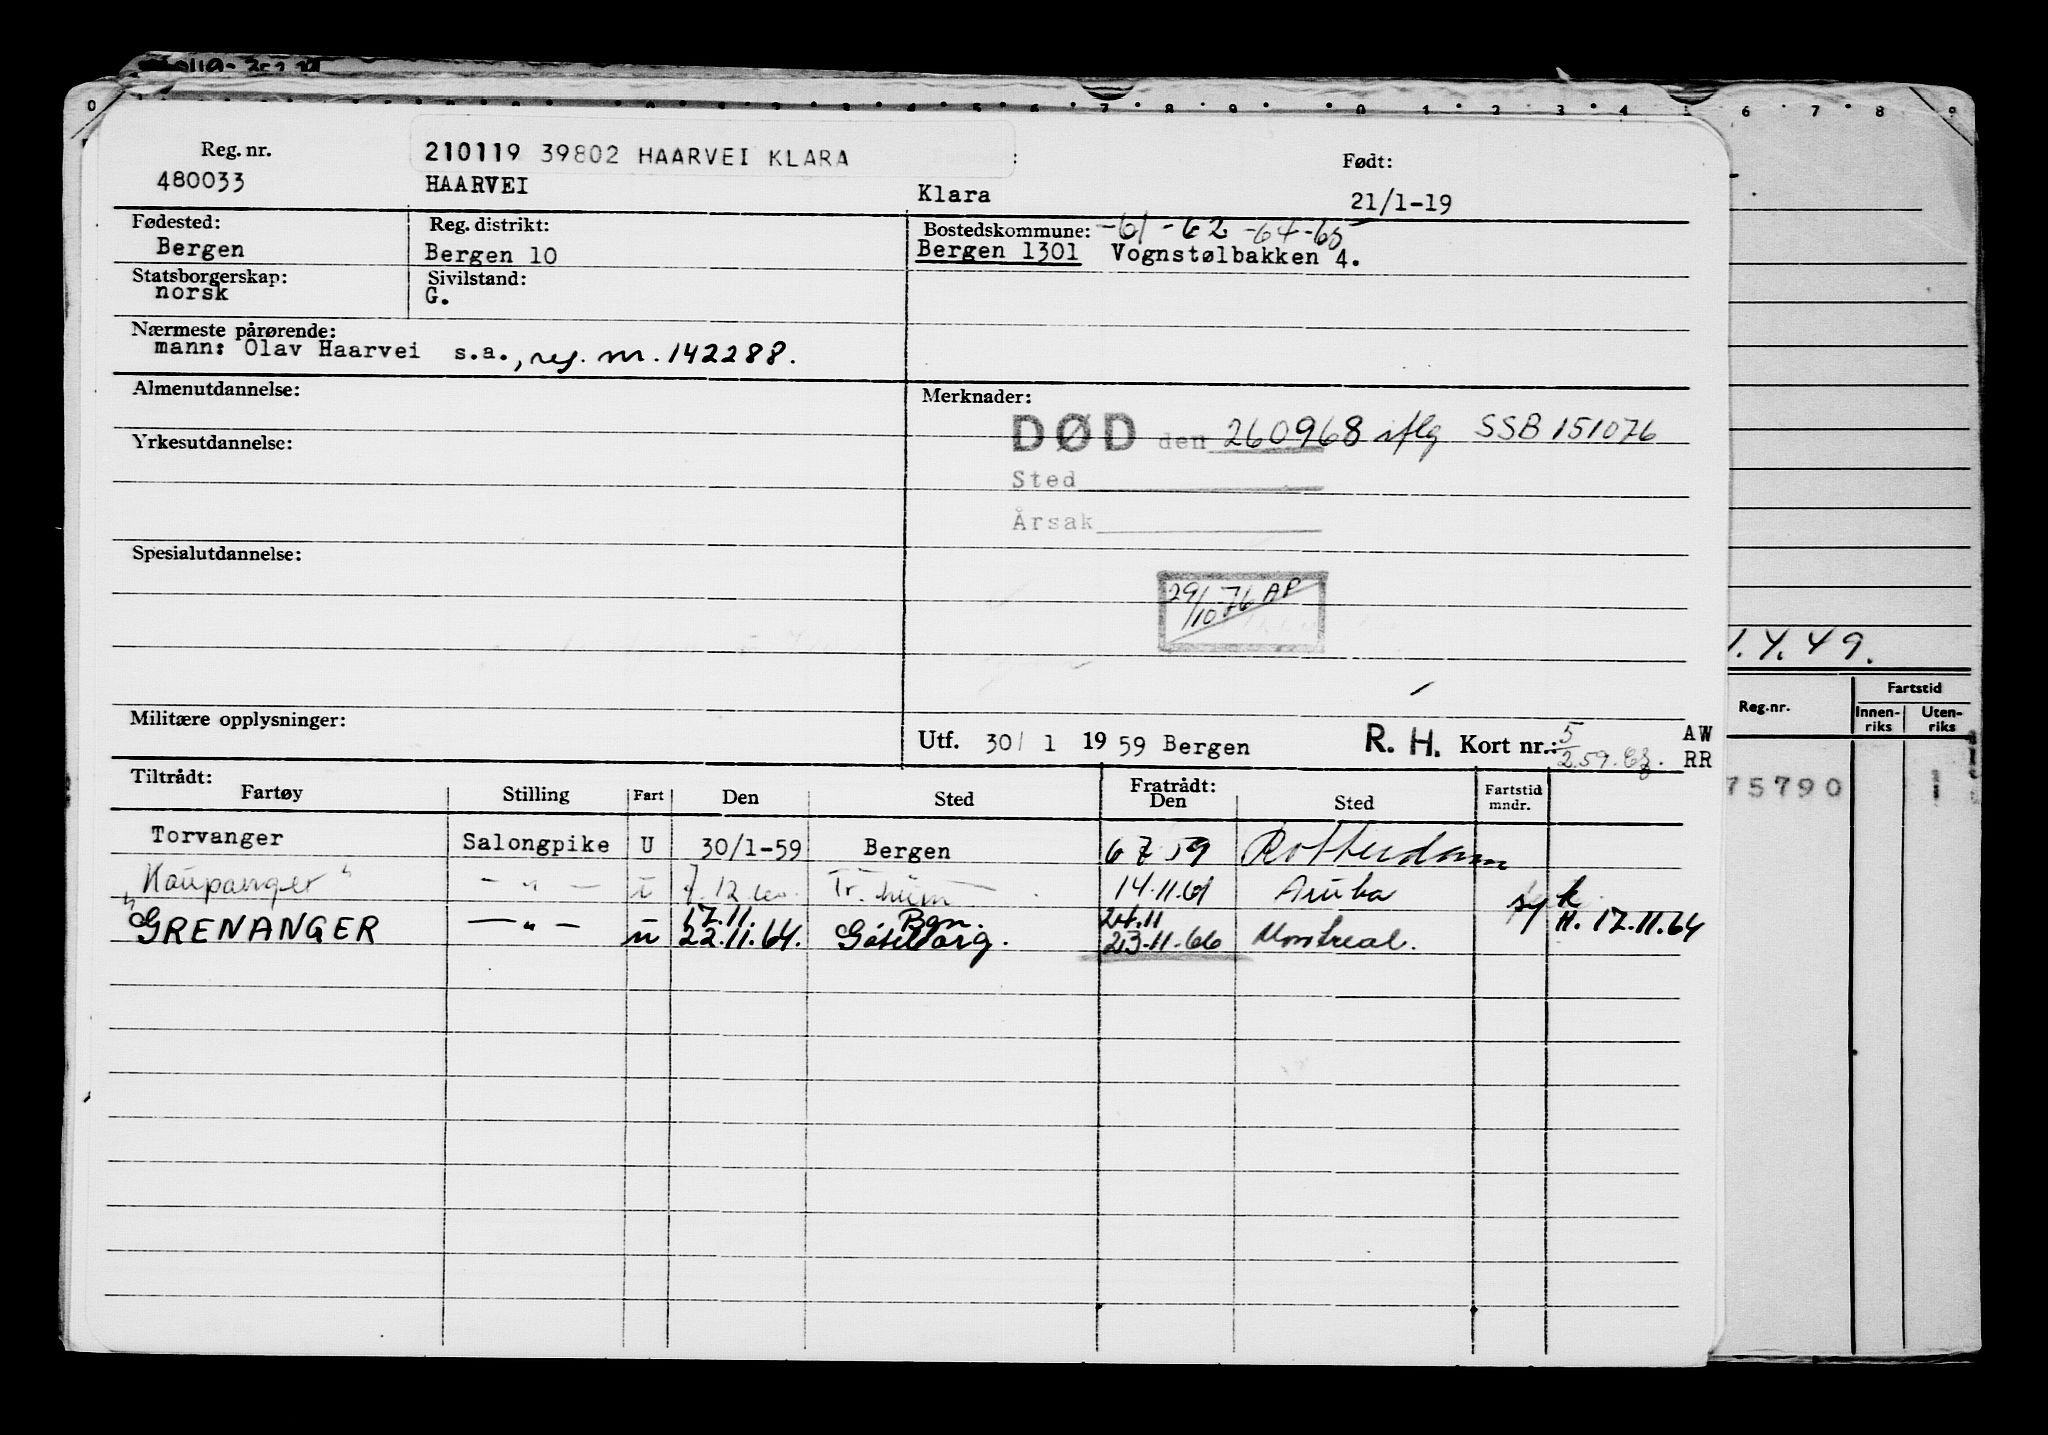 0 7 8 9 0 1 2 3 4 5 6 7 8 9
Reg. nr.
210119 39802 HAARVEI KLARA
Født:
480033
HAARVEI
Klara
21/1-19
Fødested:
Reg. distrikt:
Bostedskommune: -61-62-64-65
Bergen
Bergen 10
Bergen 1301 Vognstølbakken 4.
Statsborgerskap:
Sivilstand:
norsk
G.
Nærmeste pårørende:
mann: Olav Haarvei s.a., reg. nr. 142288.
Almenutdannelse:
Merknader:
DØD den 260968 iflg SSB 151076
Yrkesutdannelse:
Sted
Årsak
Spesialutdannelse:
29/10-76 AP
1.4.49.
Militære opplysninger:
Utf. 30/ 1 1959 Bergen R. H. Kort nr.: 5/2.59. AW
RR
Reg.nr.
Fartstid
Innen-riks
Uten-riks
75790
Tiltrådt:
Fratrådt:
Fartøy Stilling Fart Den Sted Den Sted Fartstid mndr.
Torvanger Salongpike U 30/1-59 Bergen 6 7 59 Rotterdam
"Kaupanger" - " - u 7.12.60. Tr.heim 14.11.61 Aruba syk
17.11. Bgn. 24.11 H. 17.11.64
GRENANGER - " - u 22.11.64. Göteborg. 23.11.66 Montreal.